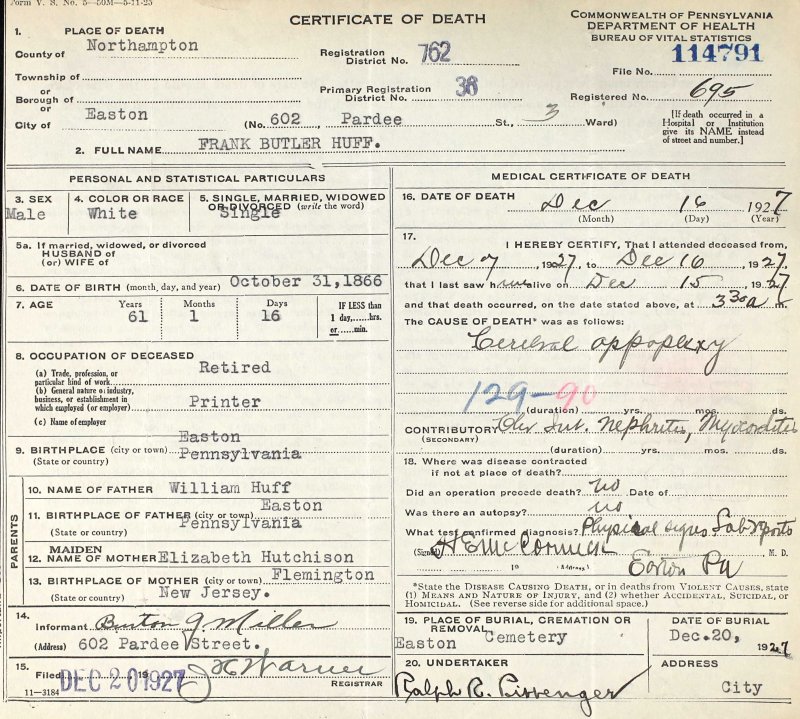 Form V. S. No. 5—50M—5-11-25
CERTIFICATE OF DEATH
COMMONWEALTH OF PENNSYLVANIA
DEPARTMENT OF HEALTH
BUREAU OF VITAL STATISTICS
1. PLACE OF DEATH
County of Northampton
Registration District No. 762
114791
File No.
Township of
or
Borough of
Primary Registration District No. 36
Registered No. 695
or
City of Easton (No. 602, Pardee St., 3 Ward)
[If death occurred in a Hospital or Institution give its NAME instead of street and number.]
2. FULL NAME FRANK BUTLER HUFF.
PERSONAL AND STATISTICAL PARTICULARS
3. SEX Male
4. COLOR OR RACE White
5. SINGLE, MARRIED, WIDOWED OR DIVORCED (write the word) Single
5a. If married, widowed, or divorced
HUSBAND of
(or) WIFE of
6. DATE OF BIRTH (month, day, and year) October 31, 1866
7. AGE Years Months Days IF LESS than
61 1 16 1 day,......hrs.
or......min.
8. OCCUPATION OF DECEASED
(a) Trade, profession, or particular kind of work Retired
(b) General nature of industry, business, or establishment in which employed (or employer) Printer
(c) Name of employer
9. BIRTHPLACE (city or town) Easton
(State or country) Pennsylvania
PARENTS
10. NAME OF FATHER William Huff
11. BIRTHPLACE OF FATHER (city or town) Easton
(State or country) Pennsylvania
12. MAIDEN NAME OF MOTHER Elizabeth Hutchison
13. BIRTHPLACE OF MOTHER (city or town) Flemington
(State or country) New Jersey.
14. Informant Burton J. Miller
(Address) 602 Pardee Street.
15. Filed DEC 20 1927 19 Warner
REGISTRAR
11-3184
MEDICAL CERTIFICATE OF DEATH
16. DATE OF DEATH Dec 16 1927
(Month) (Day) (Year)
17. I HEREBY CERTIFY, That I attended deceased from,
Dec 7 1927, to Dec 16 1927
that I last saw h alive on Dec 15 1927
and that death occurred, on the date stated above, at 3 30 a m.
The CAUSE OF DEATH* was as follows:
Cerebral appoplexy
129-90
(duration) yrs. mos. ds.
CONTRIBUTORY Int. Nephritis,
(SECONDARY)
(duration) yrs. mos. ds.
18. Where was disease contracted
if not at place of death?
Did an operation precede death? no Date of
Was there an autopsy? no
What test confirmed diagnosis? Physical signs. Lab reports
(Signed) H E McCormick M. D.
19 (Address) Easton Pa
*State the DISEASE CAUSING DEATH, or in deaths from VIOLENT CAUSES, state
(1) MEANS AND NATURE OF INJURY, and (2) whether ACCIDENTAL, SUICIDAL, or
HOMICIDAL. (See reverse side for additional space.)
19. PLACE OF BURIAL, CREMATION OR REMOVAL
Easton Cemetery
DATE OF BURIAL
Dec. 20, 1927
20. UNDERTAKER
Ralph R. Pissenger
ADDRESS
City